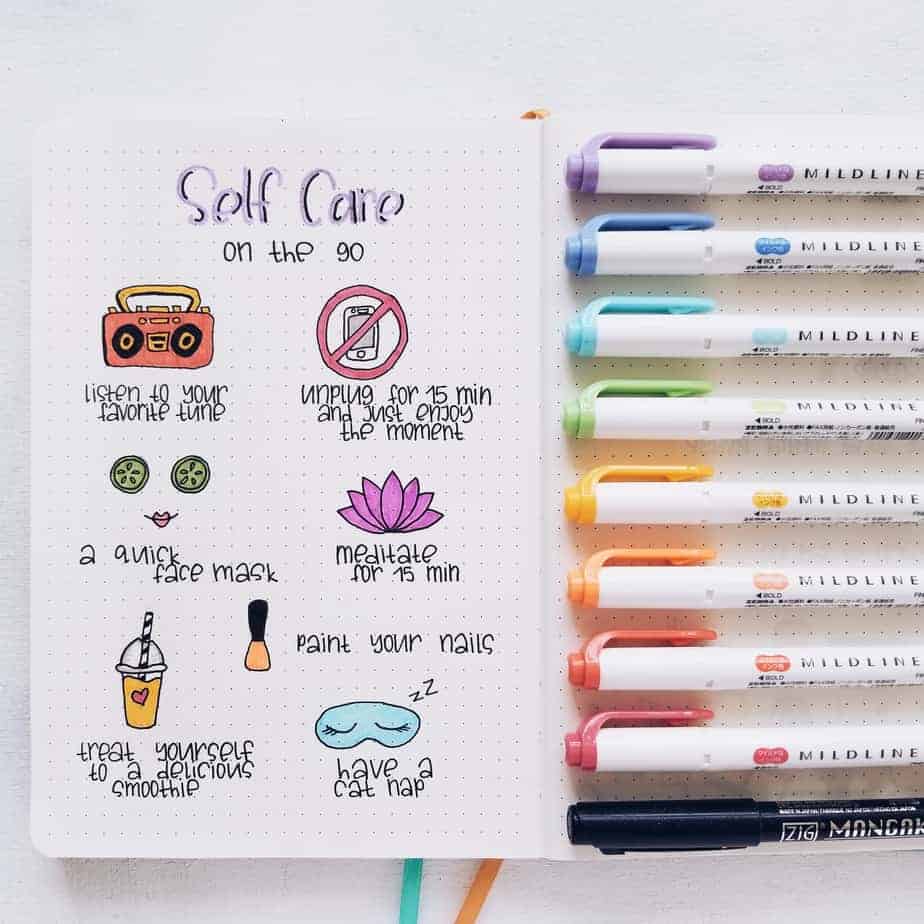 Self Care
on the go
listen to your
favorite tune
unplug for 15 min
and just enjoy
the moment
a quick
face mask
meditate
for 15 min
paint your nails
treat yourself
to a delicious
smoothie
zz
have a
cat nap
MILDLINE
BOLD
MILDLINE
BOLD
FIN
MILDLINE
BOLD
FIN
MILDLINE
BOLD
FIN
MILDLINE
BOLD
FIN
MILDLINE
BOLD
FIN
MILDLINE
BOLD
FIN
MILDLINE
BOLD
FIN
ZIG MANGAK